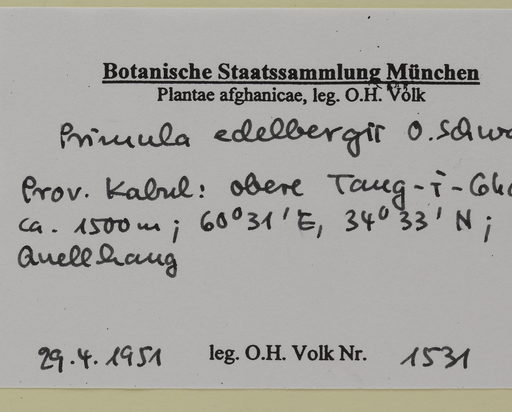 Botanische Staatssammlung München
Plantae afghanicae, leg. O.H. Volk
Primula edelbergii O. Schwa
Prov. Kabul: obere Tang-i-Gha
ca. 1500 m; 60°31'E, 34°33' N;
Quellhang
29.4.1951 leg. O.H. Volk Nr. 1531